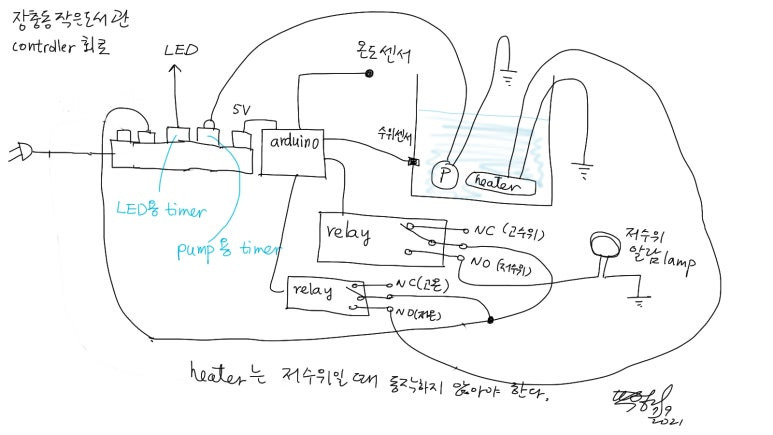 장충동작은도서관
controller 회로
LED
온도센서
5V
arduino
수위센서
P
heater
LED용 timer
pump용 timer
relay
NC (고수위)
NO (저수위)
저수위
알람 lamp
relay
NC (고온)
NO (저온)
heater는 저수위일 때 동작하지 않아야 한다.
7/9
2021